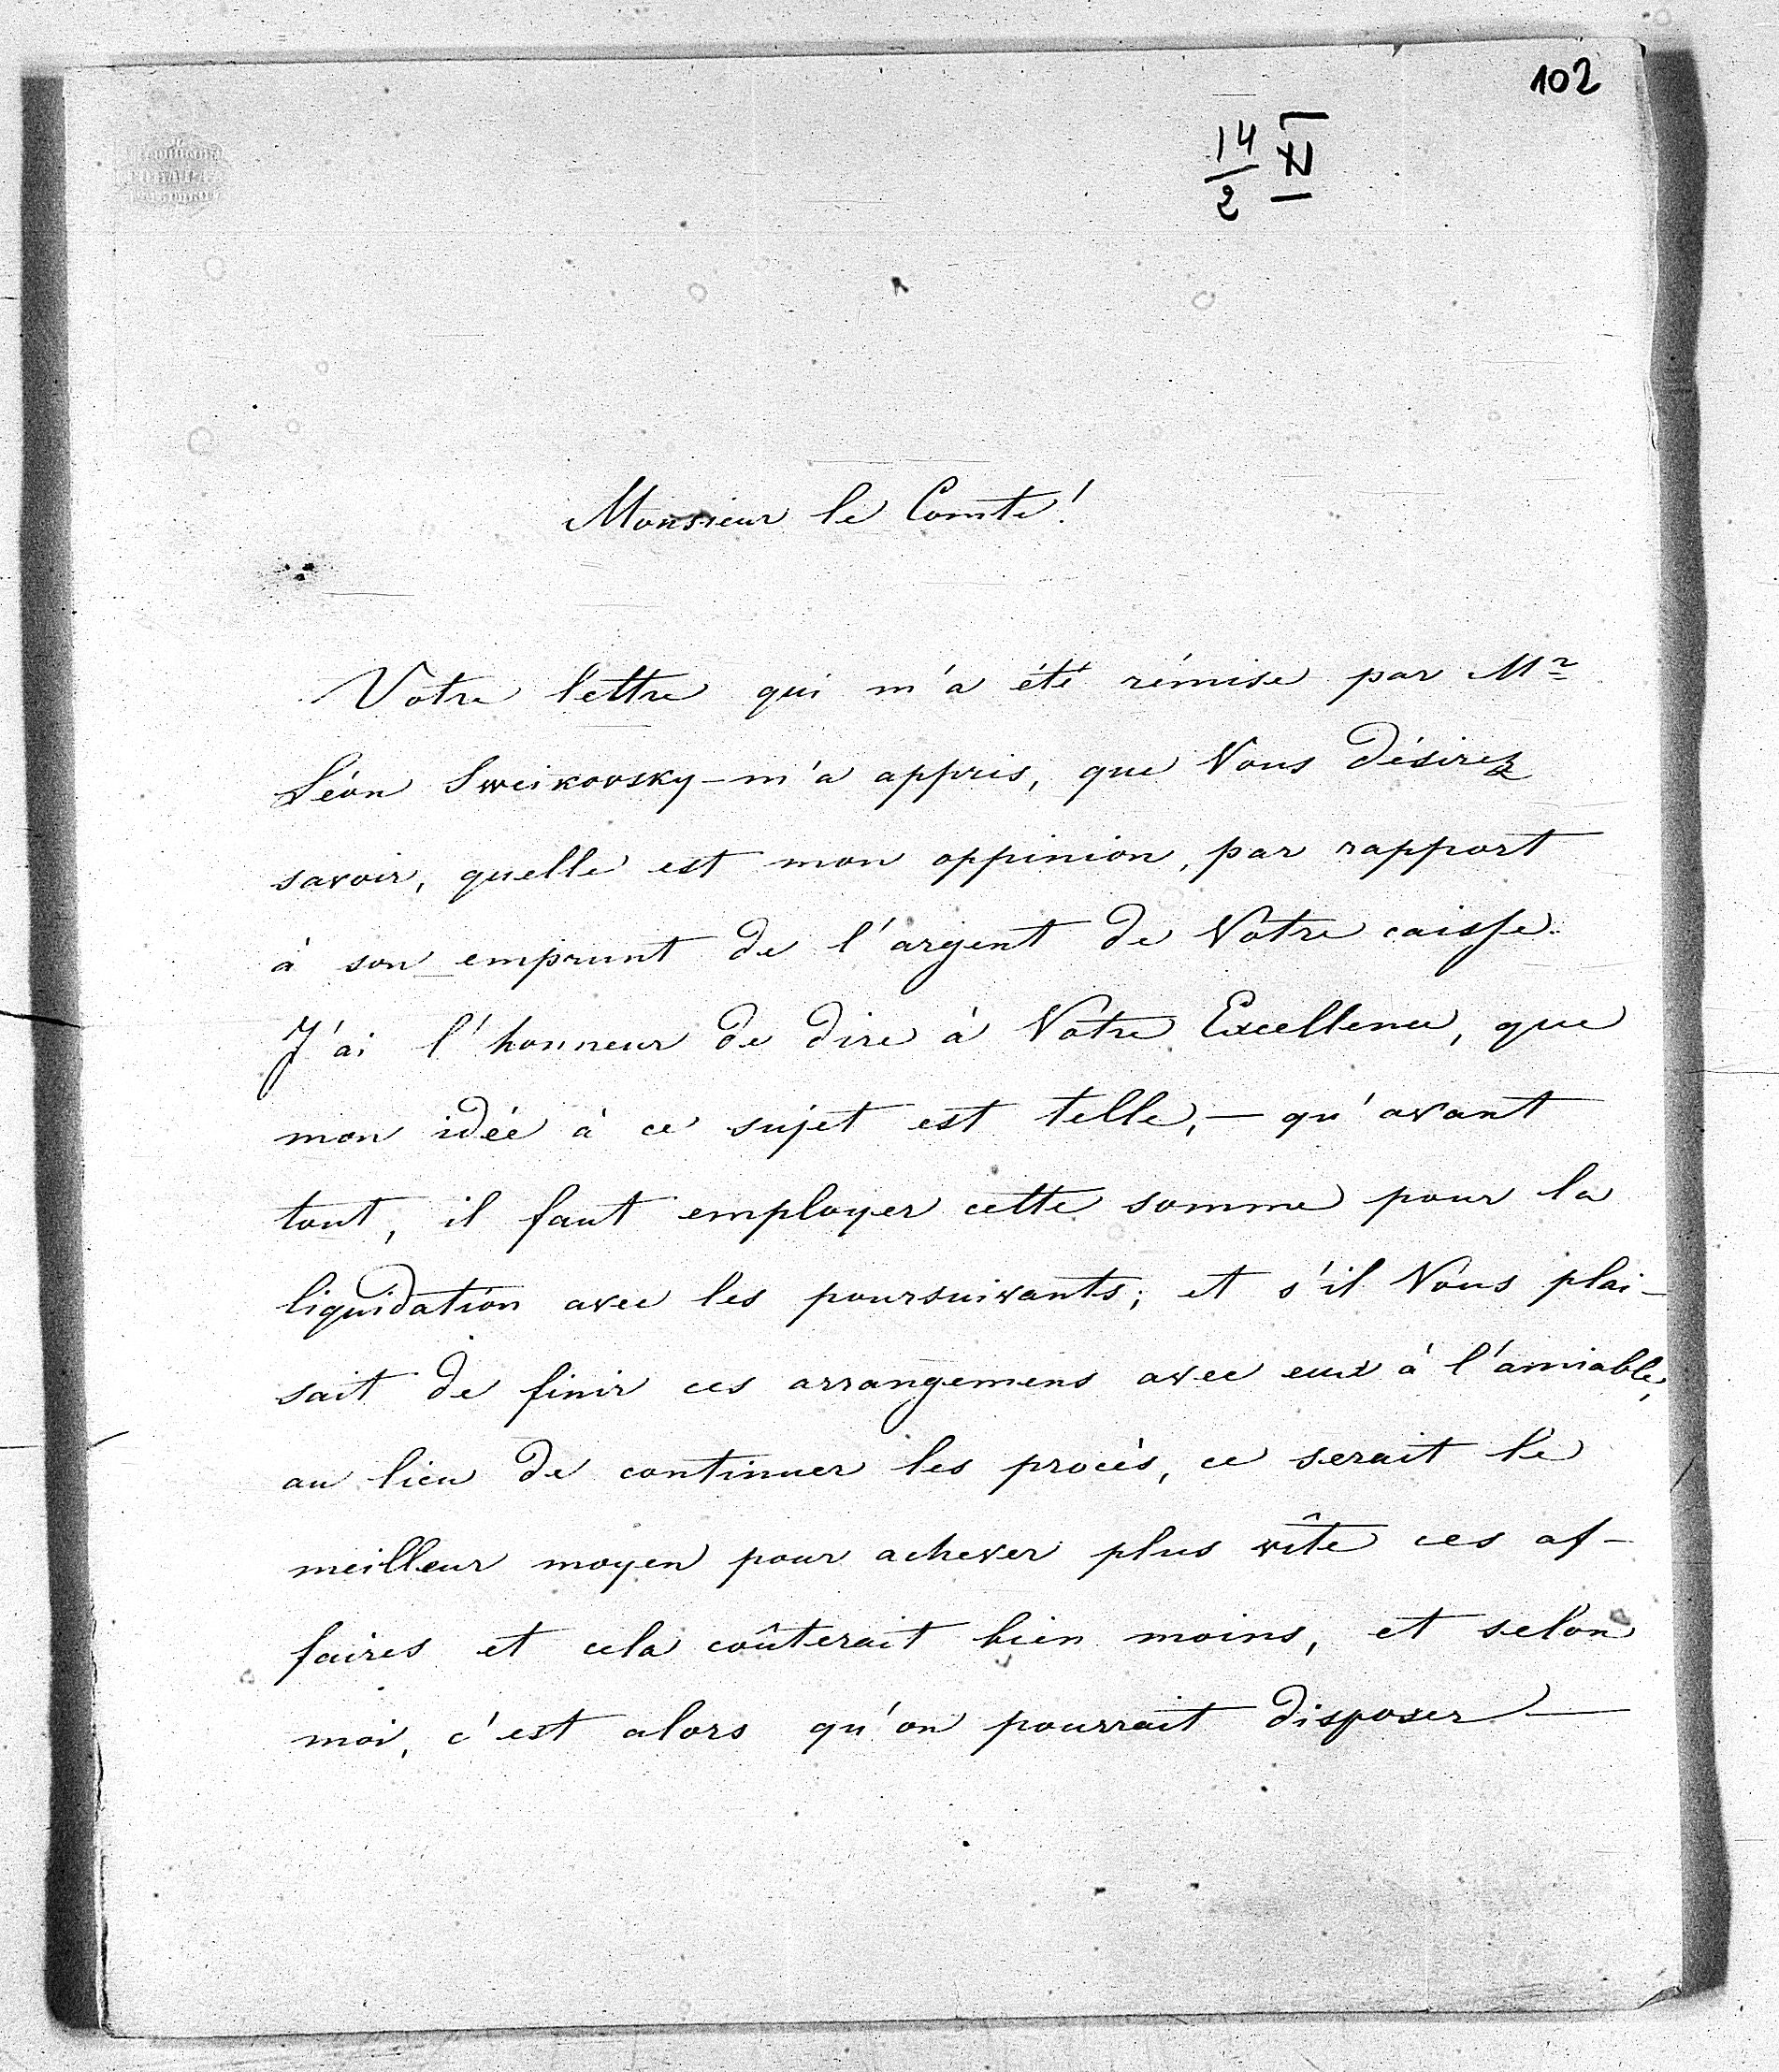 102
14 XI
2
Monsieur le Comte!
Votre lettre qui m'a été rémise par Mr
Léon Sweikovsky – m'a appris, que Vous désirez
savoir, quelle est mon oppinion, par rapport
à son emprunt de l'argent de Votre caisse.
J'ai l'honneur de dire à Vôtre Excellence, que
mon idée à ce sujet est telle, – qu'avant
tout, il faut employer cette somme pour la
liquidation avec les poursuivants; et s'il Vous plai-
sait de finir ces arrangemens avec eux à l'amiable,
au lieu de continuer les procès, ce serait le
meilleur moyen pour achever plus vîte ces af-
faires et cela coûterait bien moins, et selon
moi, c'est alors qu'on pourrait disposer –